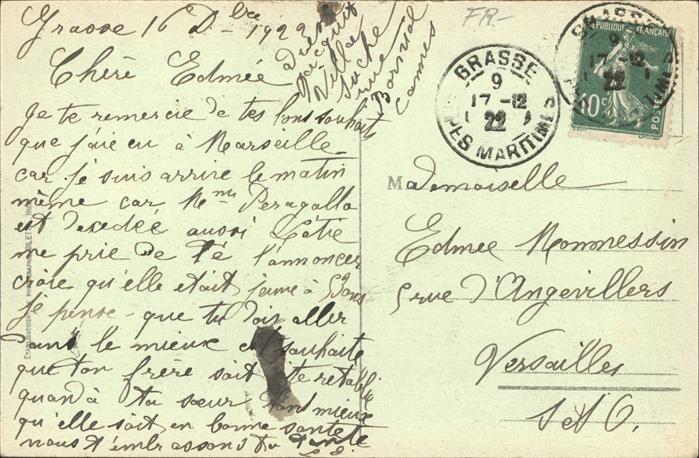 Grasse 16 Dbre 1922
Chère Edmée
Je te remercie de tes bons souhaits
que j'aie eu à Marseille
car je suis arrive le matin
même car Mme Peragallo
est decedée aussi
me prie de te l'annoncer
qu'elle etait jeune à
je pense que tu dois aller
dans le mieux et souhaite
que ton frère soit vite retabli
quand à ta sœur tant mieux
qu'elle soit en bonne santé
nous t'embrassons ta tante
Villa
rue
Cannes
FR-
GRASSE
9
17-12
22
ALPES MARITIMES
GRASSE
9
17-12
22
RÉPUBLIQUE FRANÇAISE
10c
POSTES
Mademoiselle
Edmée Mommessin
5 rue d'Angevillers
Versailles
S et O.